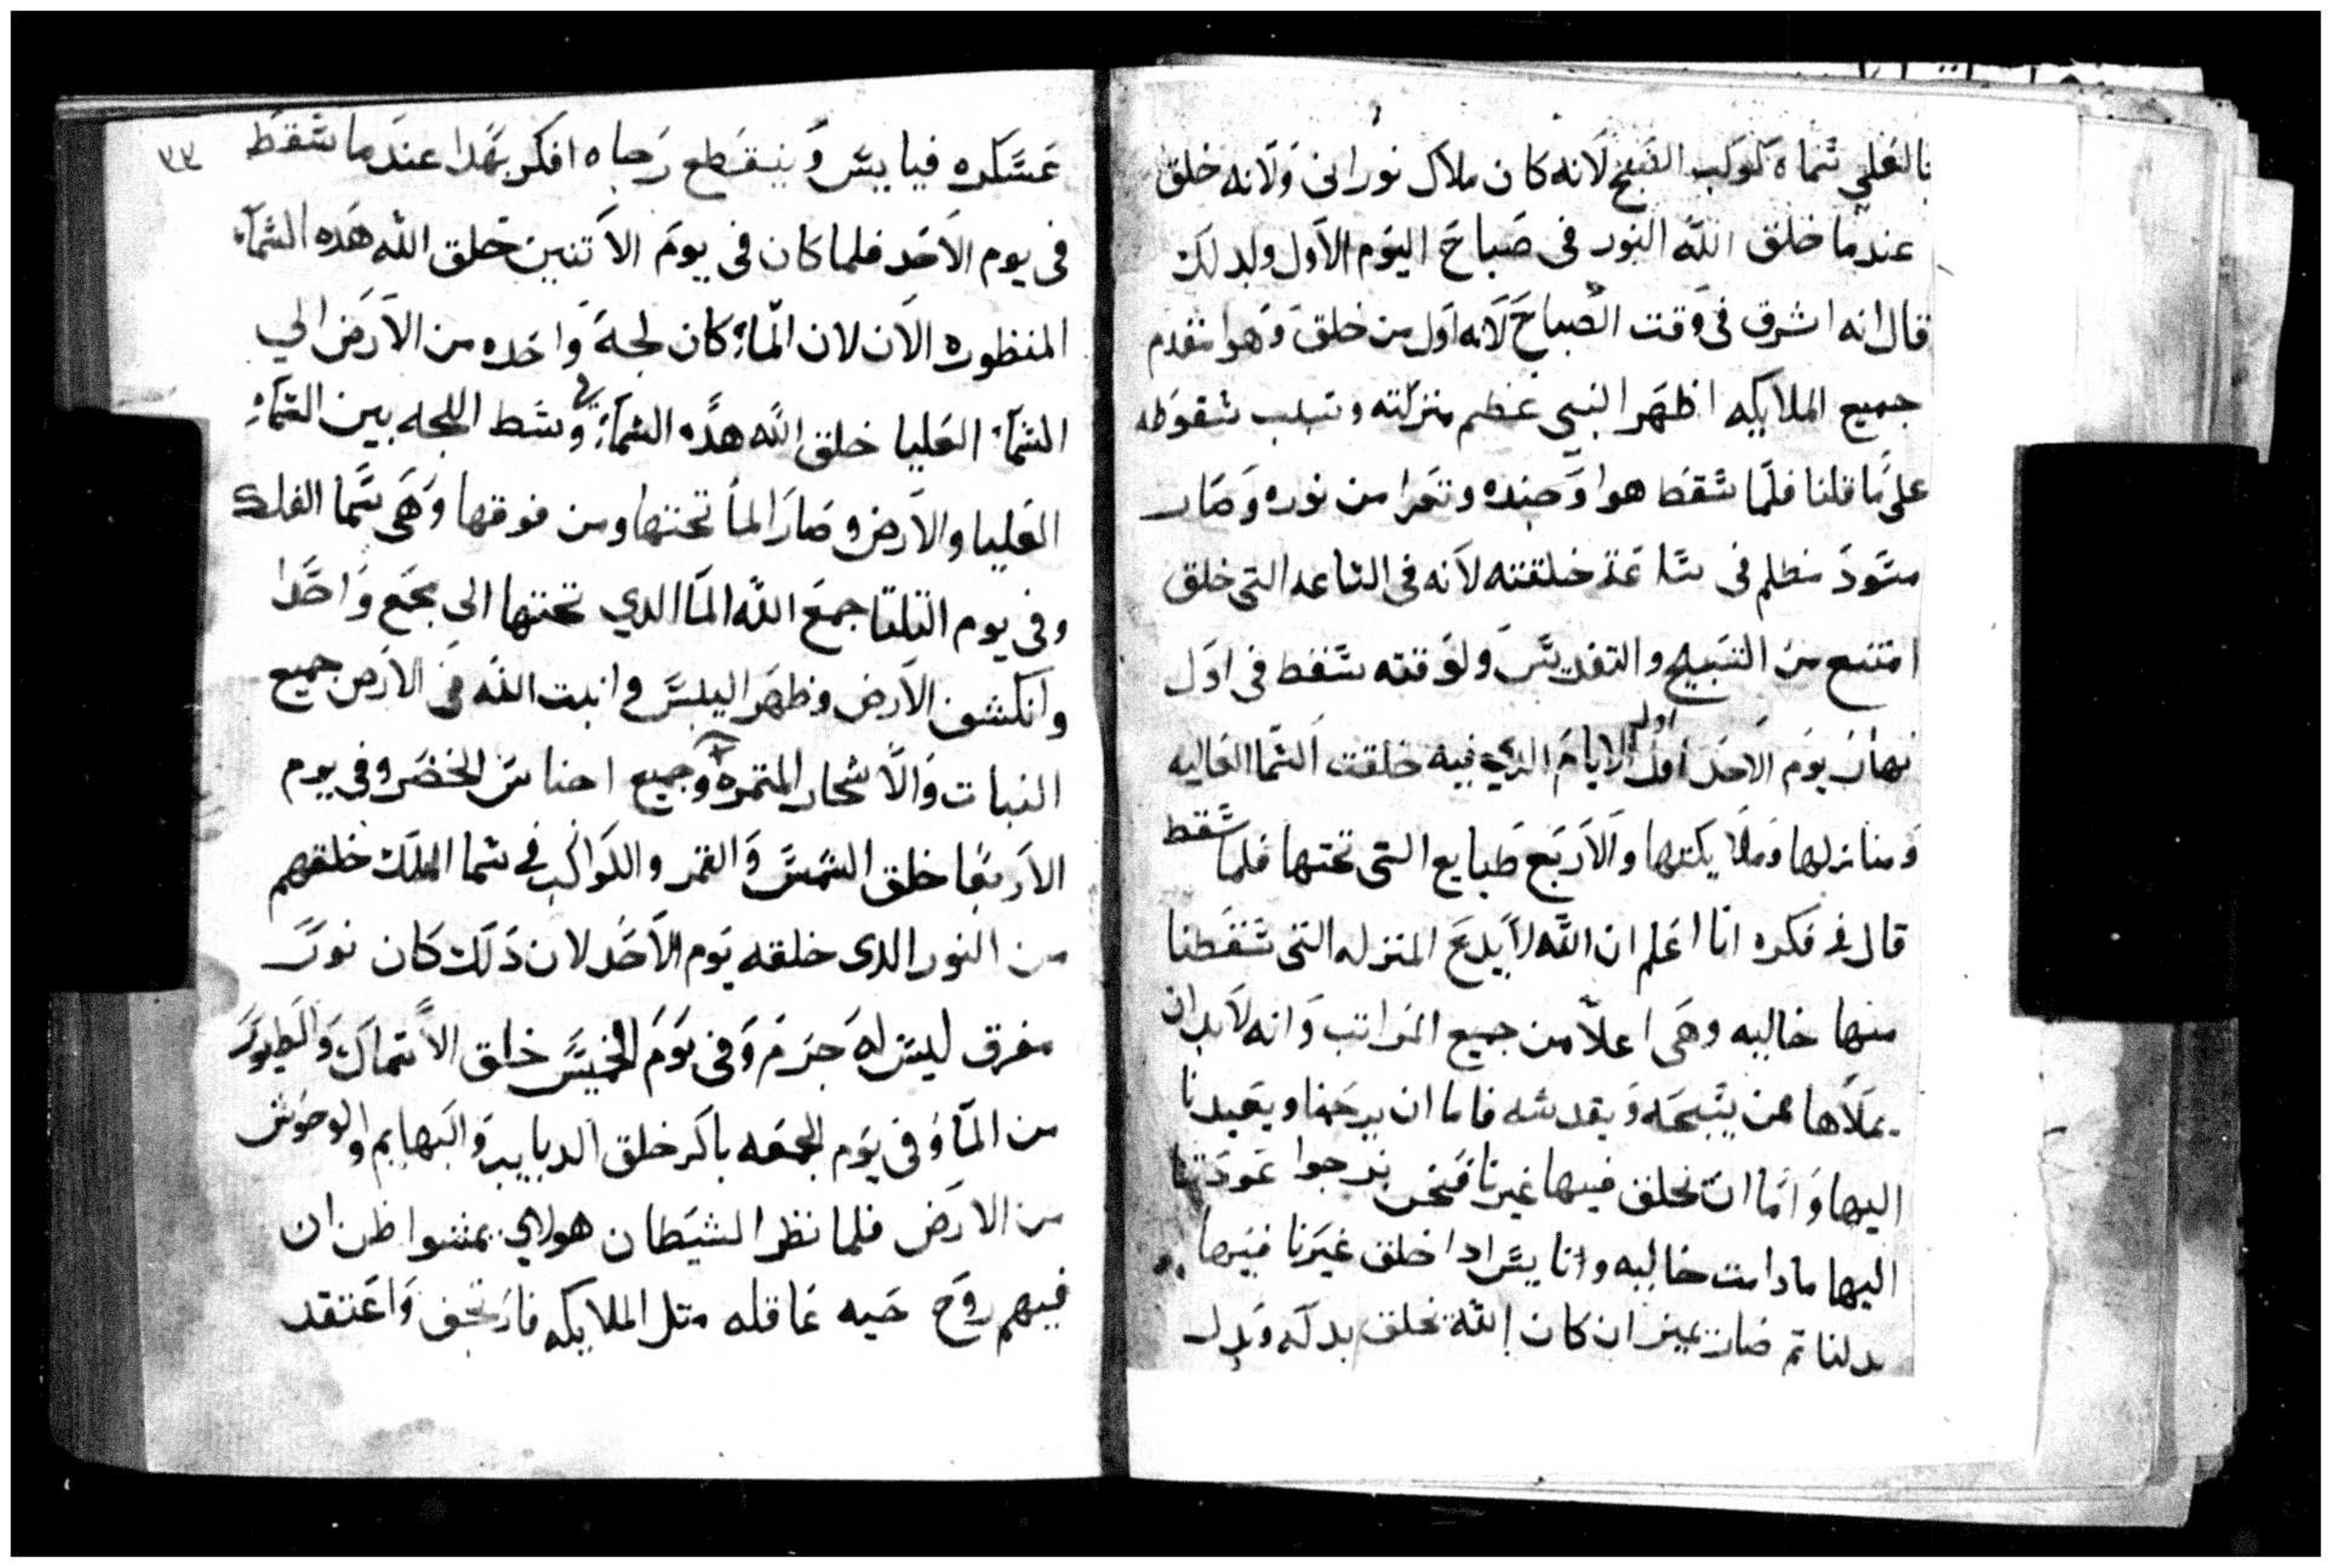 بالعلي شماه كوكب الصبح لانه كان ملاك نوراني ولانه خلق
عندما خلق الله النور في صباح اليوم الاول ولدلك
قال انه اشرق في وقت الصباح لانه اول من خلق وهوا متقدم
جميع الملايكه اظهر النبي عظم منزلته وسبب شقوطه
على ما قلنا فلما شقط هوا وجنده وتعرا من نوره وصار
مسود مظلم في ساعة خلقته لانه في الشاعه التي خلق
امتنع من التسبيح والتقديس ولوقته سقط في اول
نهار يوم الاحد اول الايام الدي فيه خلقت الشما العاليه
ومنازلها وملايكتها والاربع طبايع التي تحتها فلما شقط
قال في فكره انا اعلم ان الله لا يدع المنزله التي شقطنا
منها خاليه وهي اعلا من جميع المراتب وانه لابد ان
يملاها ممن يسبحه ويقدسه فاما ان يرحمنا ويعيدنا
اليها واما ان يخلق فيها غيرنا فنحن نرجوا عودتنا
اليها مادامت خاليه وانا يس اداخلق غيرنا فيها
بدلنا تم صار يميز ان كان الله يخلق بدله وبدل
٣٣
عسكره فيايس وينقطع رجاه افكر بهدا عندما شقط
في يوم الاحد فلما كان في يوم الاتنين خلق الله هده الشماء
المنظوره الان لان الماء كان لجة واحده من الارض الي
الشماء العليا خلق الله هده الشماء في وسط اللجه بين الشماء
العليا والارض وصار الما تحتها ومن فوقها وهي سما الفلك
وفي يوم التلتا جمع الله الما الدي تحتها الى مجمع واحدا
وانكشف الارض وظهر اليبس وانبت الله في الارض جميع
النبات والاشجار المتمره وجميع اجناس الخضر وفي يوم
الاربعا خلق الشمس والقمر والكواكب في سما الفلك خلقهم
من النور الدي خلقه يوم الاحد لان دلك كان نور
مفرق ليس له جرم وفي يوم الخميس خلق الاسماك والطيور
من الما وفي يوم الجمعه باكر خلق الدبابيب والبهايم والوحوش
من الارض فلما نظر الشيطان هولاي يمشوا ظن ان
فيهم روح حيه عاقله متل الملايكه فارتجف واعتقد